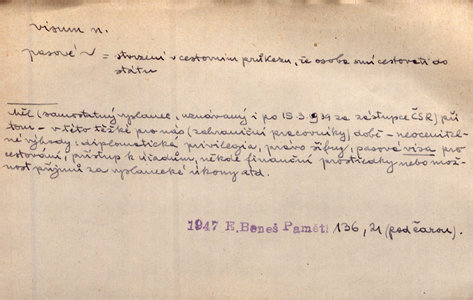 visum n.
pasové ~ = stvrzení v cestovním průkazu, že osoba smí cestovati do
státu
měl (samostatný vyslanec, uznávaný i po 15.3.1939 za zástupce ČSR) při
tom – v této těžké pro nás (zahraniční pracovníky) době – neocenitel-
né výhody: diplomatická privilegia, právo šifry, pasová visa pro
cestování, přístup k úřadům, někde finanční prostředky nebo mož-
nost příjmů za vyslanecké úkony atd.
1947 E. Beneš Paměti 136, 21 (pod čarou).